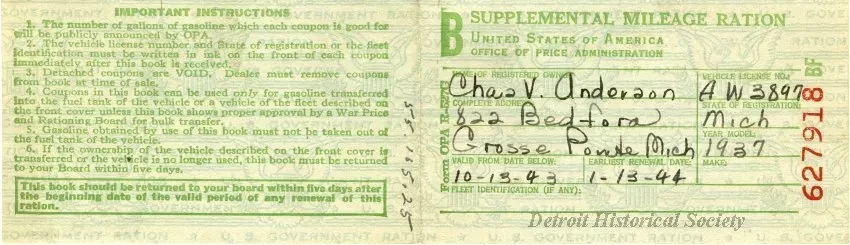 IMPORTANT INSTRUCTIONS
1. The number of gallons of gasoline which each coupon is good for
will be publicly announced by OPA.
2. The vehicle license number and State of registration or the fleet
identification must be written in ink on the front of each coupon
immediately after this book is received.
3. Detached coupons are VOID. Dealer must remove coupons
from book at time of sale.
4. Coupons in this book can be used only for gasoline transferred
into the fuel tank of the vehicle or a vehicle of the fleet described on
the front cover unless this book shows proper approval by a War Price
and Rationing Board for bulk transfer.
5. Gasoline obtained by use of this book must not be taken out of
the fuel tank of the vehicle.
6. If the ownership of the vehicle described on the front cover is
transferred or the vehicle is no longer used, this book must be returned
to your Board within five days.
This book should be returned to your board within five days after
the beginning of the valid period of any renewal of this
ration.
B
SUPPLEMENTAL MILEAGE RATION
UNITED STATES OF AMERICA
OFFICE OF PRICE ADMINISTRATION
Form OPA R-527G
OF REGISTERED OWNER
Chas V. Anderson
VEHICLE LICENSE NO.:
AW3897
COMPLETE ADDRESS
822 Bedford
STATE OF REGISTRATION:
Mich
Grosse Pointe Mich
YEAR MODEL:
1937
VALID FROM DATE BELOW:
10-13-43
EARLIEST RENEWAL DATE:
1-13-44
MAKE:
FLEET IDENTIFICATION (IF ANY):
627918 BF
Detroit Historical Society
U. S. GOVERNMENT RATION